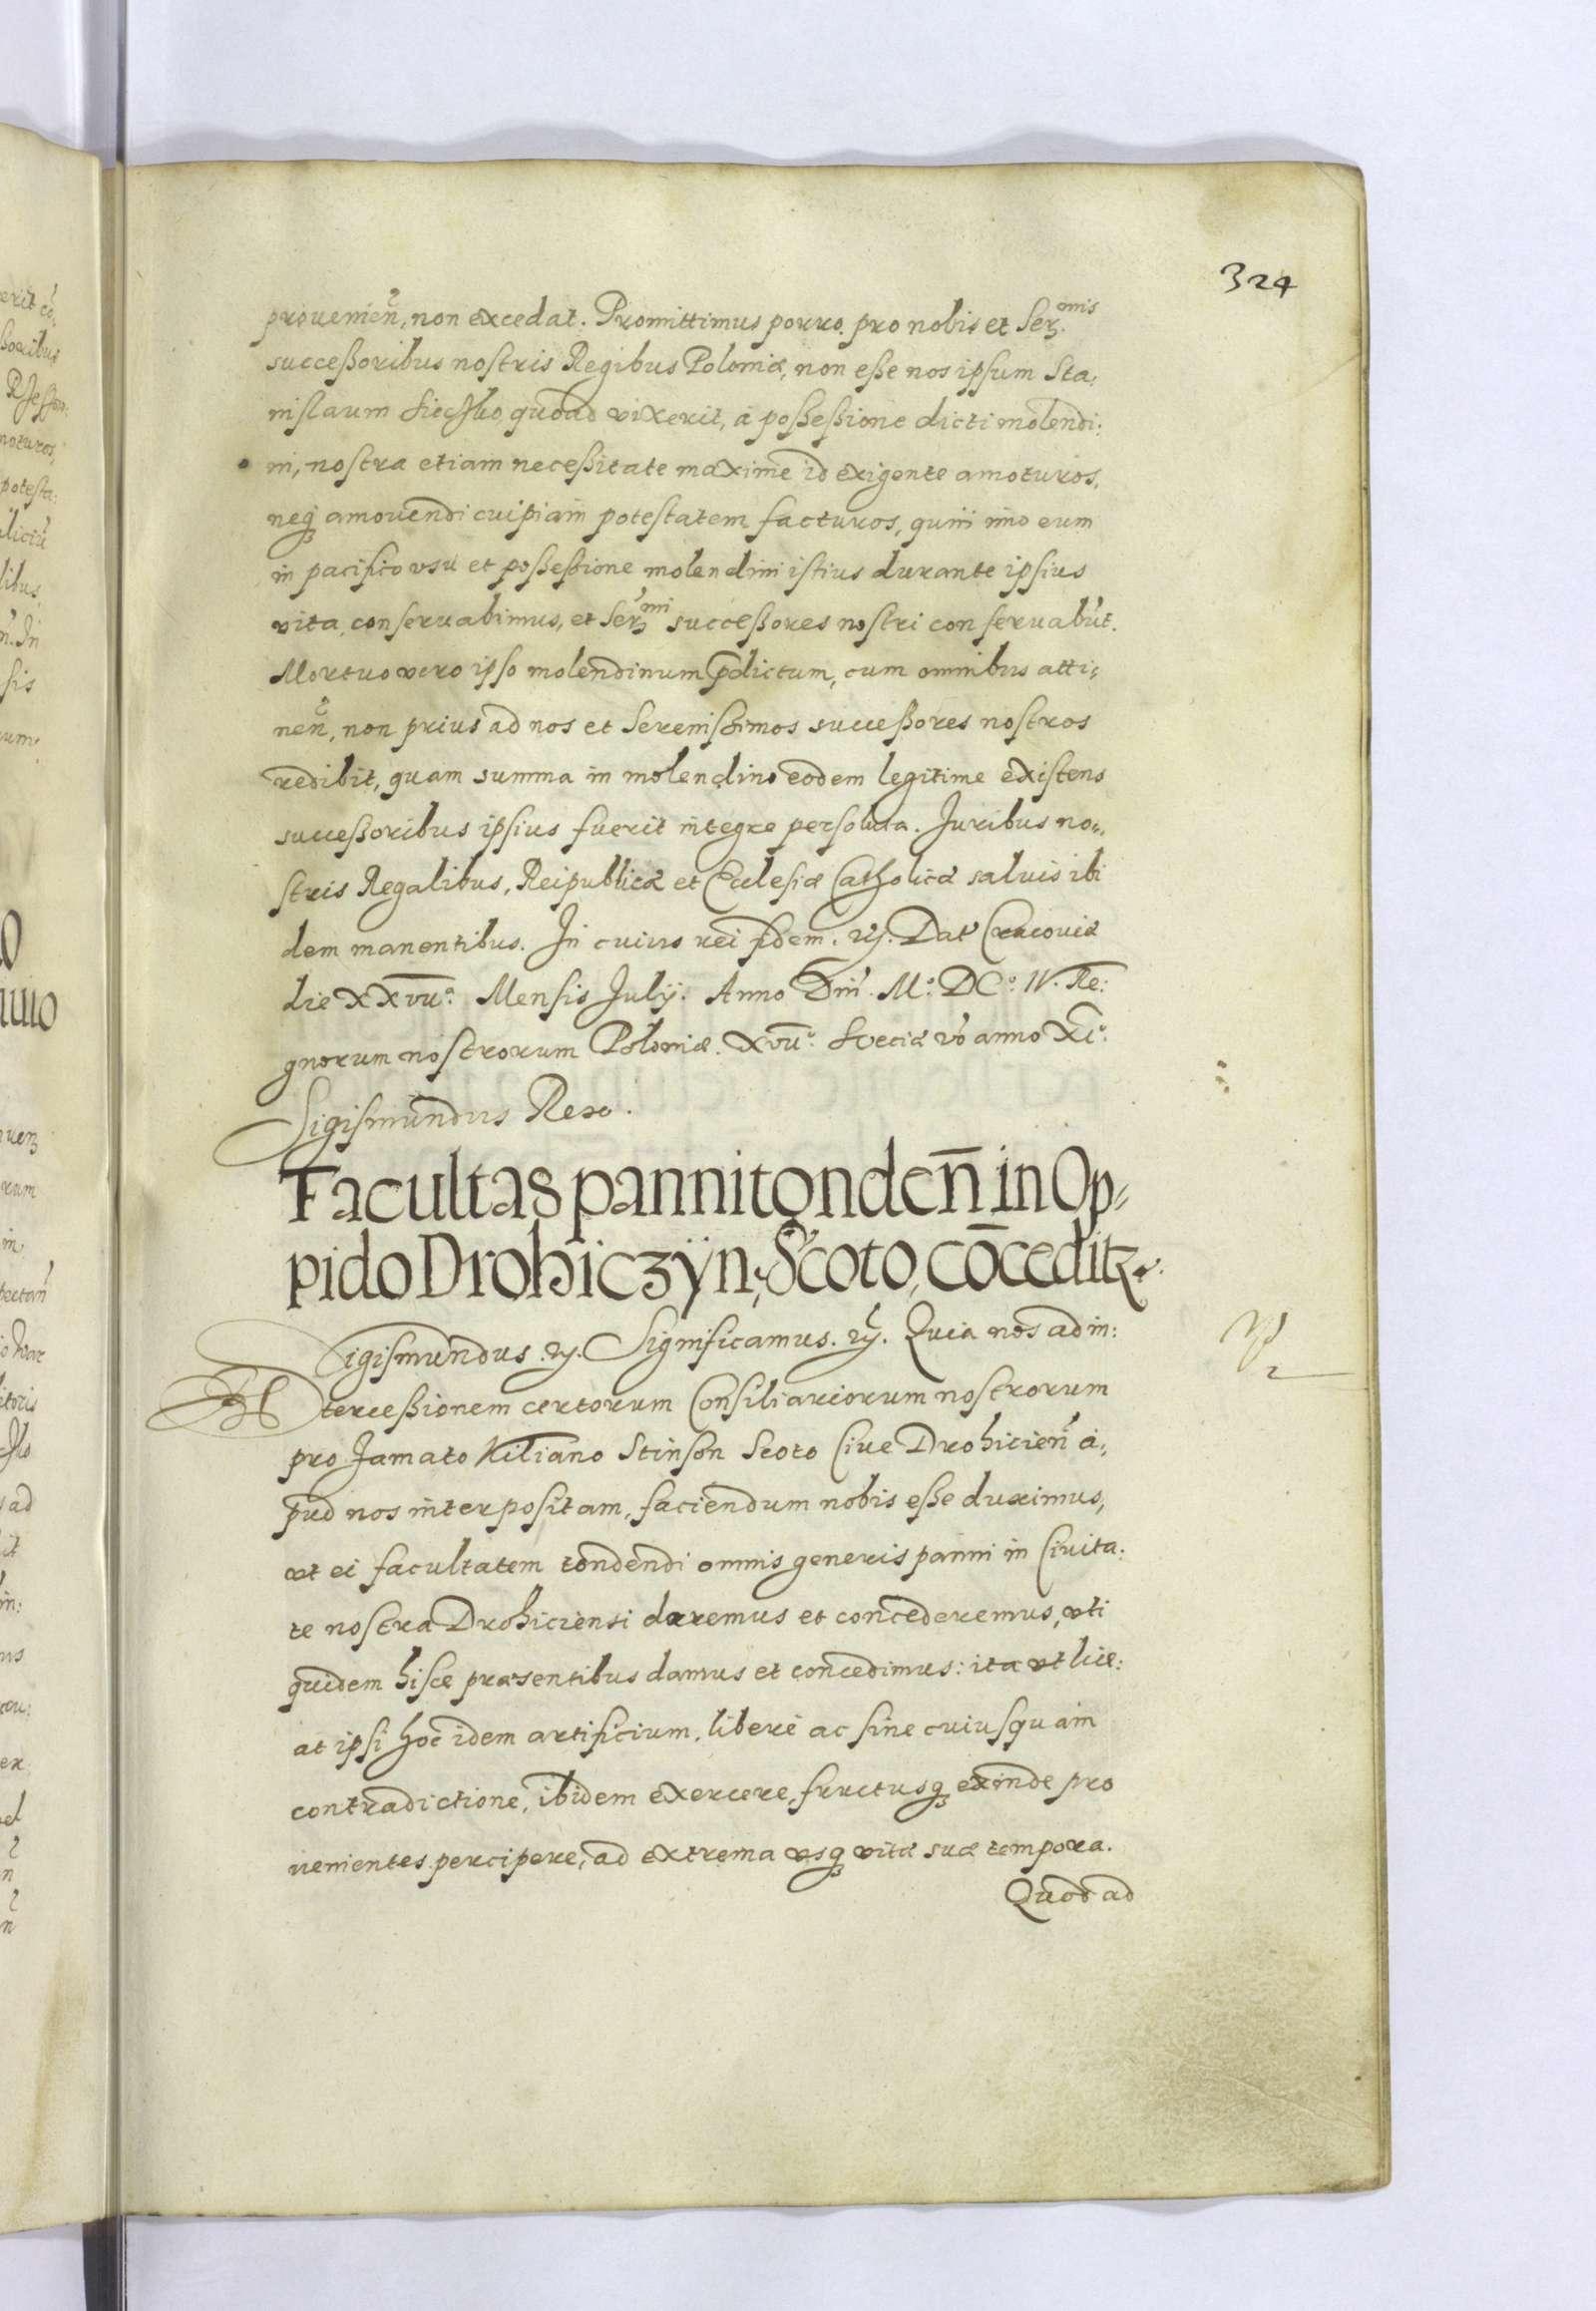 324
prouenien̄, non excedat. Promittimus porro pro nobis et Ser.omis
successoribus nostris Regibus Poloniæ, non esse nos ipsum Sta:
nislaum quoad vixerit, à possessione dicti molendi:
ni, nostra etiam necessitate maxime id exigente amoturos,
neq; amouendi cuipiam potestatem facturos, quin imo eum
in pacifico vsu et possessione molendini istius durante ipsius
vita, conseruabimus, et Ser.mi successores nostri conseruabūt.
Mortuo vero ipso molendinum p̄dictum, cum omnibus atti:
nen̄, non prius ad nos et Serenissimos successores nostros
redibit, quam summa in molendino eodem legitime existens
successoribus ipsius fuerit integre persoluta. Juribus no:
stris Regalibus, Reipublicæ et Ecclesiæ Catholicæ saluis ibi
dem manentibus. In cuius rei fidem. rȷ. Dat Cracouiæ
die XXVII.a Mensis Julij. Anno Dn̄i. M.o DC.o IV. Re:
gnorum nostrorum Poloniæ. XVII.o Sveciæ vō anno XI.o
Sigismundus Rex.
Facultas pannitonden̄ in Op=
pido Drohiczÿn, Scoto, cōceditz.
Sigismundus. rȷ. Significamus. rȷ. Quia nos ad in:
tercessionem certorum Consiliariorum nostrorum
pro famato Kiliano Stinson Scoto Ciue Drohicien̄ a:
pud nos interpositam, faciendum nobis esse duximus,
vt ei facultatem tondendi omnis generis panni in Ciuita:
te nostra Drohiciensi daremus et concederemus, vti
quidem hisce præsentibus damus et concedimus: ita vt lice:
at ipsi hoc idem artificium, liberè ac sine cuiusquam
contradictione, ibidem exercere, fructusq; exinde pro
uenientes percipere, ad extrema vsq; vitæ suæ tempora.
Quod ad